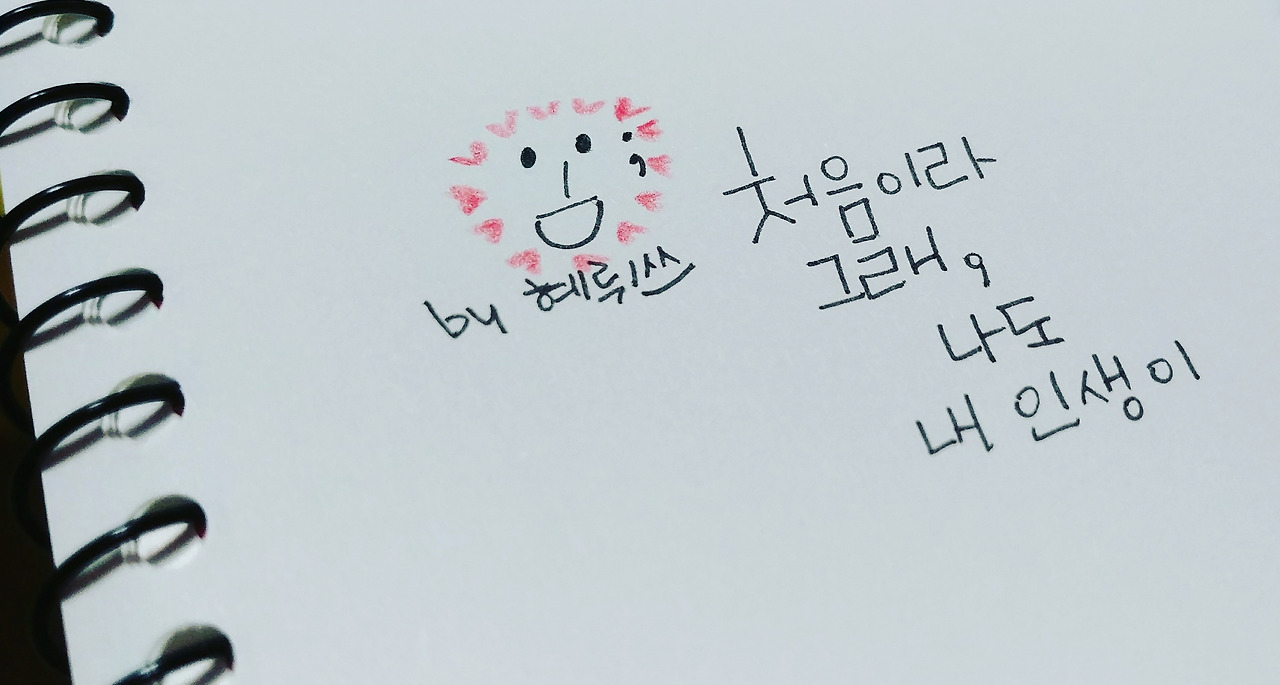 처음이라
그래,
나도
내 인생이
by 혜뤼쓰